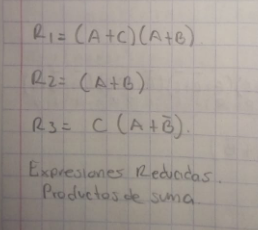 R1= (A+C)(A+B)
R2= (A+B)
R3= C (A+B̄).
Expresiones Reducidas.
Productos de suma